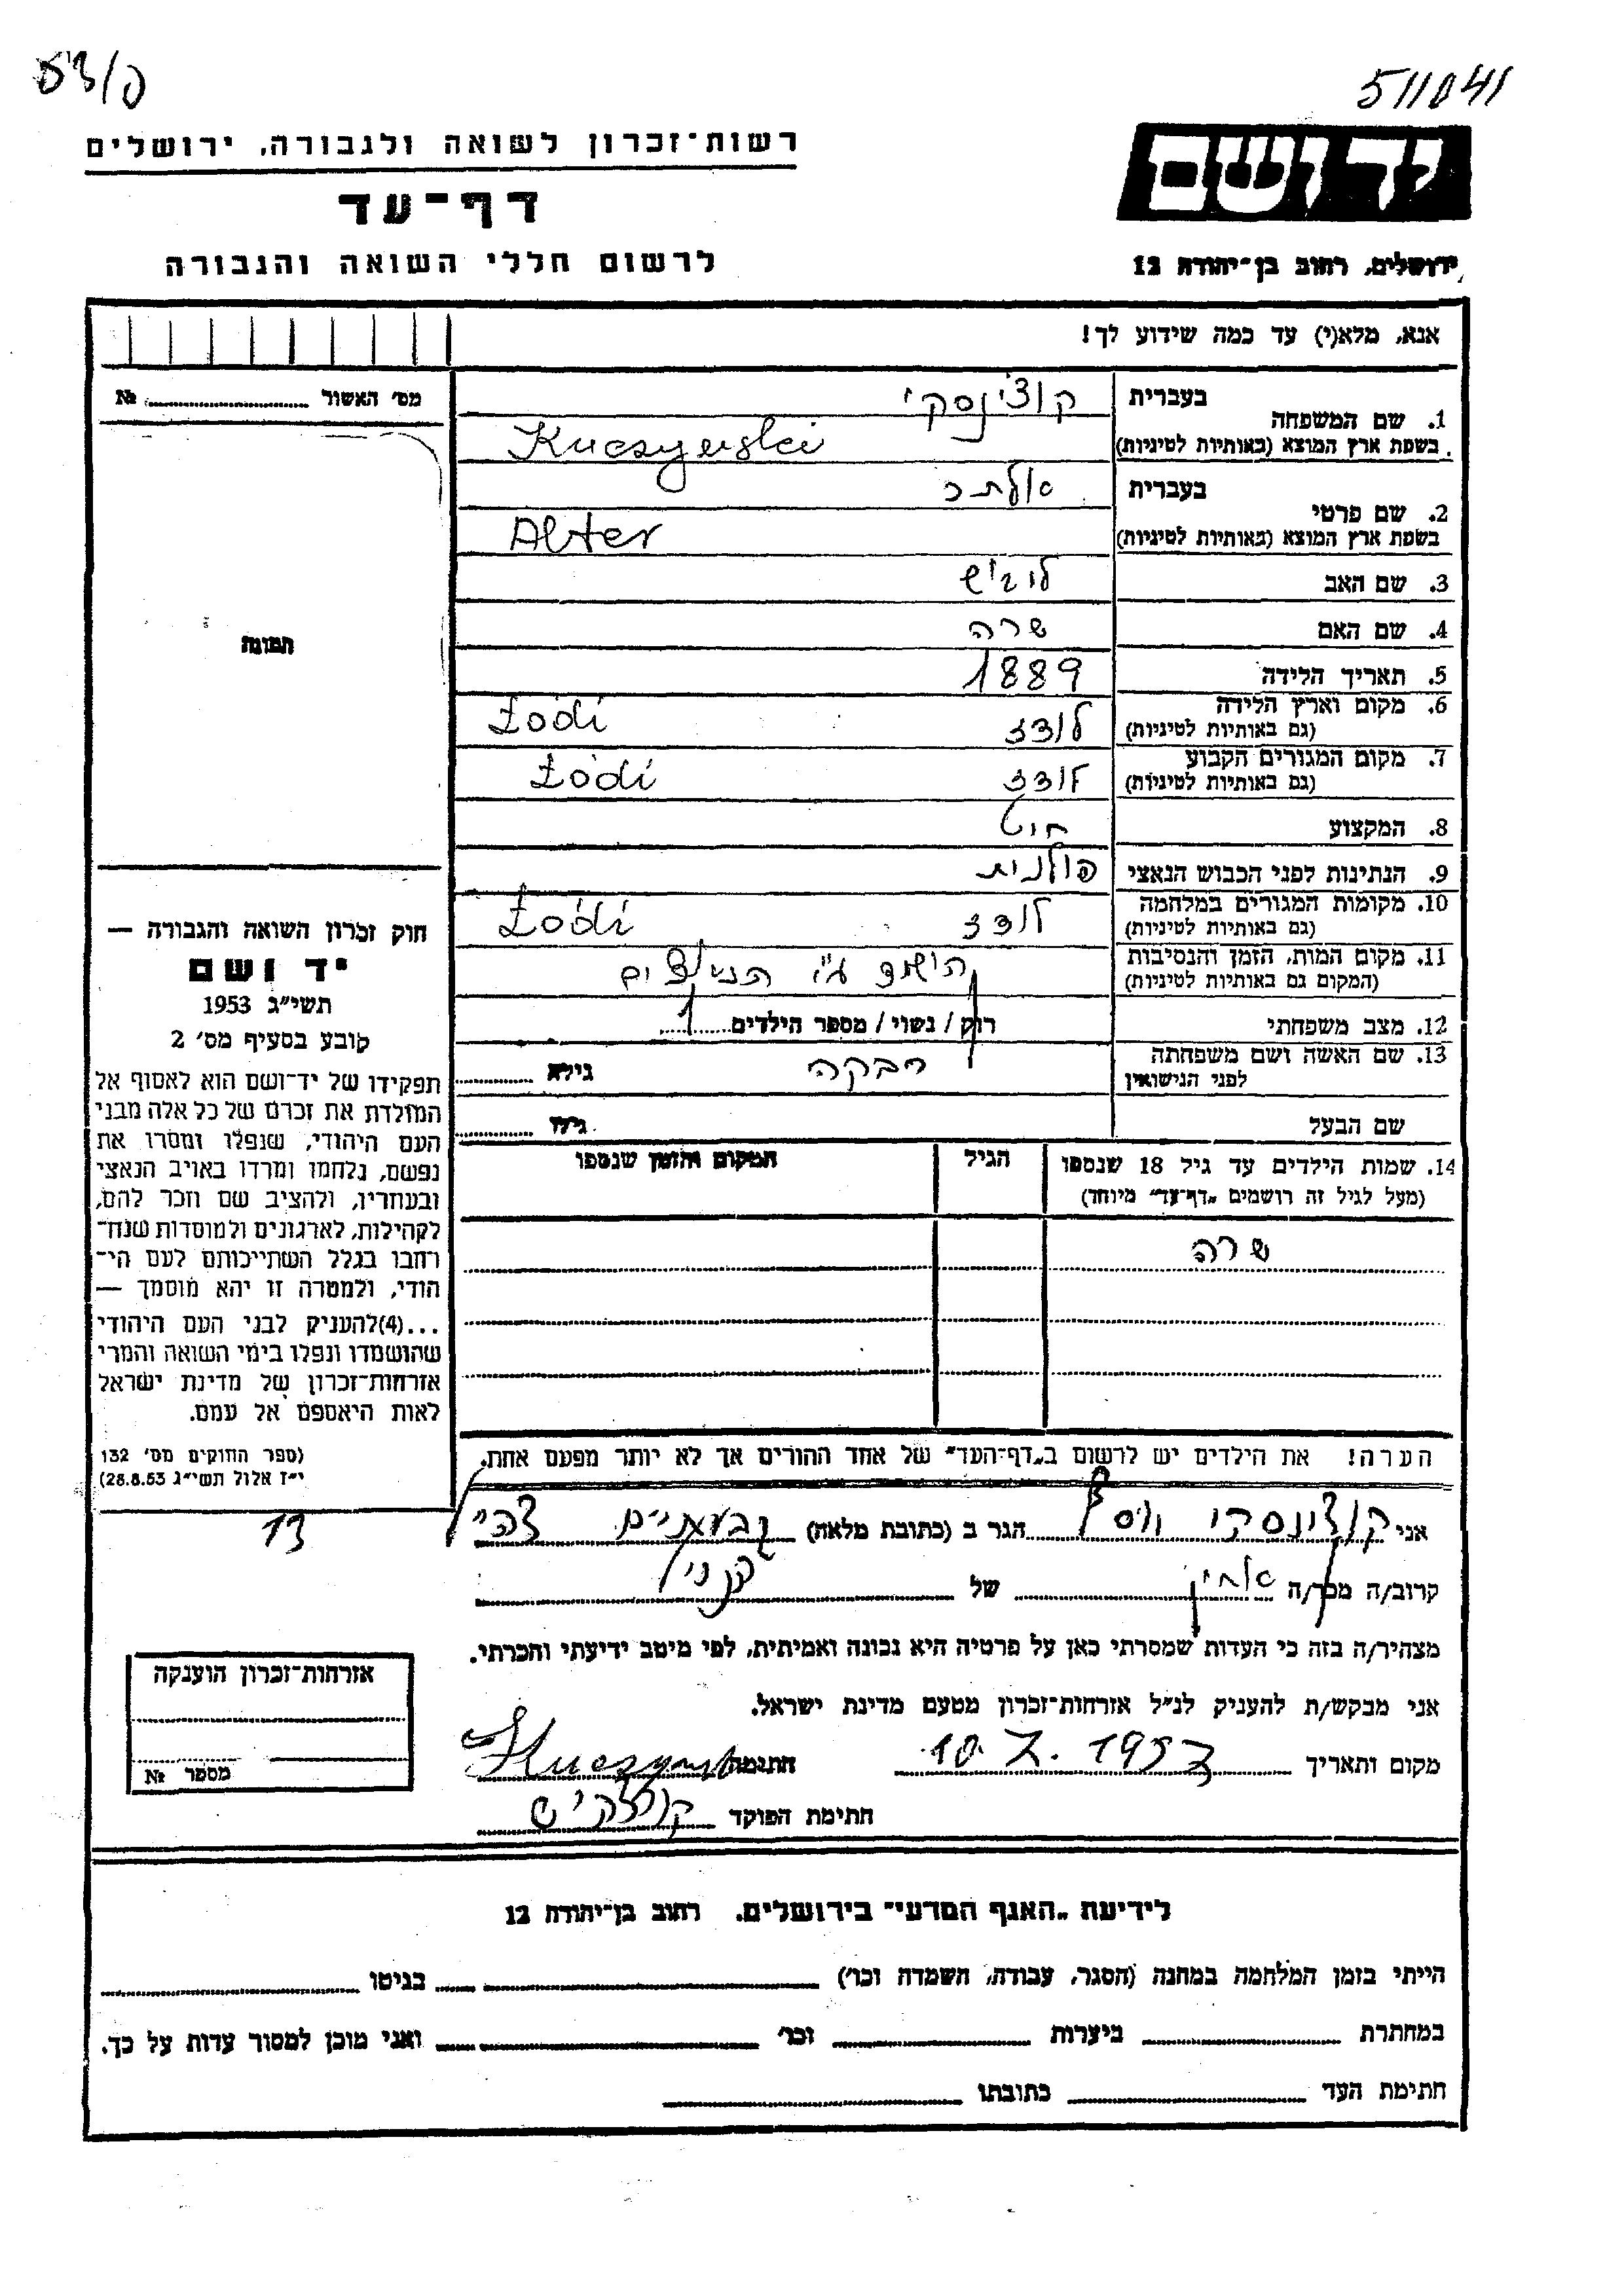 53/ק
511041
רשות-זכרון לשואה ולגבורה, ירושלים
דף-עד
לרשום חללי השואה והגבורה
יד ושם
ירושלים, רחוב בן-יהודה 12
אנא, מלא(י) עד כמה שידוע לך!
מס' האשור № 
1. שם המשפחה בעברית קוצ'ינסקי
בשפת ארץ המוצא (באותיות לטיניות) Kuczynski
2. שם פרטי בעברית אלתר
בשפת ארץ המוצא (באותיות לטיניות) Alter
3. שם האב
4. שם האם שרה
5. תאריך הלידה 1889
6. מקום וארץ הלידה לודז Łódź
(גם באותיות לטיניות)
7. מקום המגורים הקבוע לודז Łódź
(גם באותיות לטיניות)
8. המקצוע
9. הנתינות לפני הכבוש הנאצי פולנית
10. מקומות המגורים במלחמה לודז Łódź
(גם באותיות לטיניות)
11. מקום המות, הזמן והנסיבות הושמד ע"י הנאצים
(המקום גם באותיות לטיניות)
12. מצב משפחתי רוק / נשוי / מספר הילדים 1
13. שם האשה ושם משפחתה רבקה גילא
לפני הנישואין
שם הבעל גילו
14. שמות הילדים עד גיל 18 שנספו הגיל המקום והזמן שנספו
(מעל לגיל זה רושמים "דף-עד" מיוחד)
שרה
הערה! את הילדים יש לרשום ב"דף-העד" של אחד ההורים אך לא יותר מפעם אחת.
תמונה
חוק זכרון השואה והגבורה —
יד ושם
תשי"ג 1953
קובע בסעיף מס' 2
תפקידו של יד-ושם הוא לאסוף אל
המולדת את זכרם של כל אלה מבני
העם היהודי, שנפלו ומסרו את
נפשם, נלחמו ומרדו באויב הנאצי
ובעוזריו, ולהציב שם וזכר להם,
לקהילות, לארגונים ולמוסדות שנח-
רבו בגלל השתייכותם לעם הי-
הודי, ולמטרה זו יהא מוסמך —
...(4)להעניק לבני העם היהודי
שהושמדו ונפלו בימי השואה והמרי
אזרחות-זכרון של מדינת ישראל
לאות היאספם אל עמם.
(ספר החוקים מס' 132
י"ז אלול תשי"ג 28.8.53)
אני קוצ'ינסקי יוסף הגר ב (כתובת מלאה) גבעתיים 13
קרוב/ה מכר/ה אחיין של
מצהיר/ה בזה כי העדות שמסרתי כאן על פרטיה היא נכונה ואמיתית, לפי מיטב ידיעתי והכרתי.
אני מבקש/ת להעניק לנ"ל אזרחות-זכרון מטעם מדינת ישראל.
מקום ותאריך 10.7.1957 חתימה Kuczynski
חתימת הפוקד
אזרחות-זכרון הוענקה
מספר №
לידיעת "האגף המדעי" בירושלים, רחוב בן-יהודה 12
הייתי בזמן המלחמה במחנה (הסגר, עבודה, השמדה וכו') בגיטו
במחתרת ביערות וכו' ואני מוכן למסור עדות על כך.
חתימת העד כתובתו